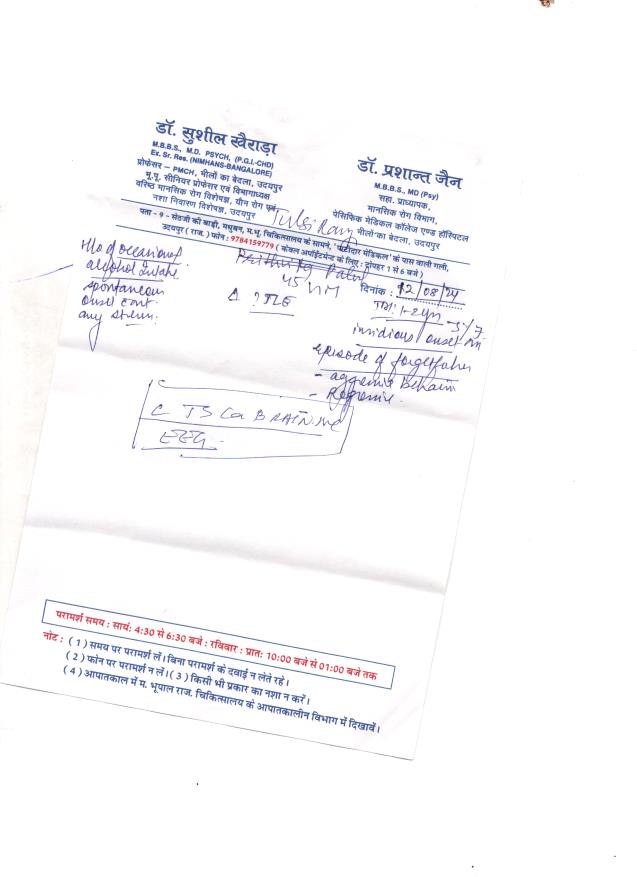 डॉ. सुशील खैराड़ा
M.B.B.S., M.D. PSYCH, (P.G.I.-CHD)
Ex. Sr. Res. (NIMHANS-BANGALORE)
प्रोफेसर – PMCH, भीलों का बेदला, उदयपुर
भू.पू. सीनियर प्रोफेसर एवं विभागाध्यक्ष
वरिष्ठ मानसिक रोग विशेषज्ञ, यौन रोग एवं
नशा निवारण विशेषज्ञ, उदयपुर
डॉ. प्रशान्त जैन
M.B.B.S., MD (Psy)
सहा. प्राध्यापक,
मानसिक रोग विभाग,
पेसिफिक मेडिकल कॉलेज एण्ड हॉस्पिटल
भीलों का बेदला, उदयपुर
Tulsi Ram
पता - 9 - सेठजी की बाड़ी, मधुबन, म.भू. चिकित्सालय के सामने, 'पाटीदार मेडिकल' के पास वाली गली,
उदयपुर ( राज. ) फोन : 9784159779 ( केवल अपॉईंटमेन्ट के लिए : दोपहर 1 से 6 बजे )
दिनांक : 12/08/24
45 M
H/o of occasional
alcohol intake
spontaneous
onset
any
Δ ? TLE
insidious onset
episode of
- aggressive behaviour
-
BRAIN
EEG
परामर्श समय : सायं: 4:30 से 6:30 बजे : रविवार : प्रात: 10:00 बजे से 01:00 बजे तक
नोट : ( 1 ) समय पर परामर्श लें। बिना परामर्श के दवाई न लेते रहें।
( 2 ) फोन पर परामर्श न लें। ( 3 ) किसी भी प्रकार का नशा न करें।
( 4 ) आपातकाल में म. भूपाल राज. चिकित्सालय के आपातकालीन विभाग में दिखावें।